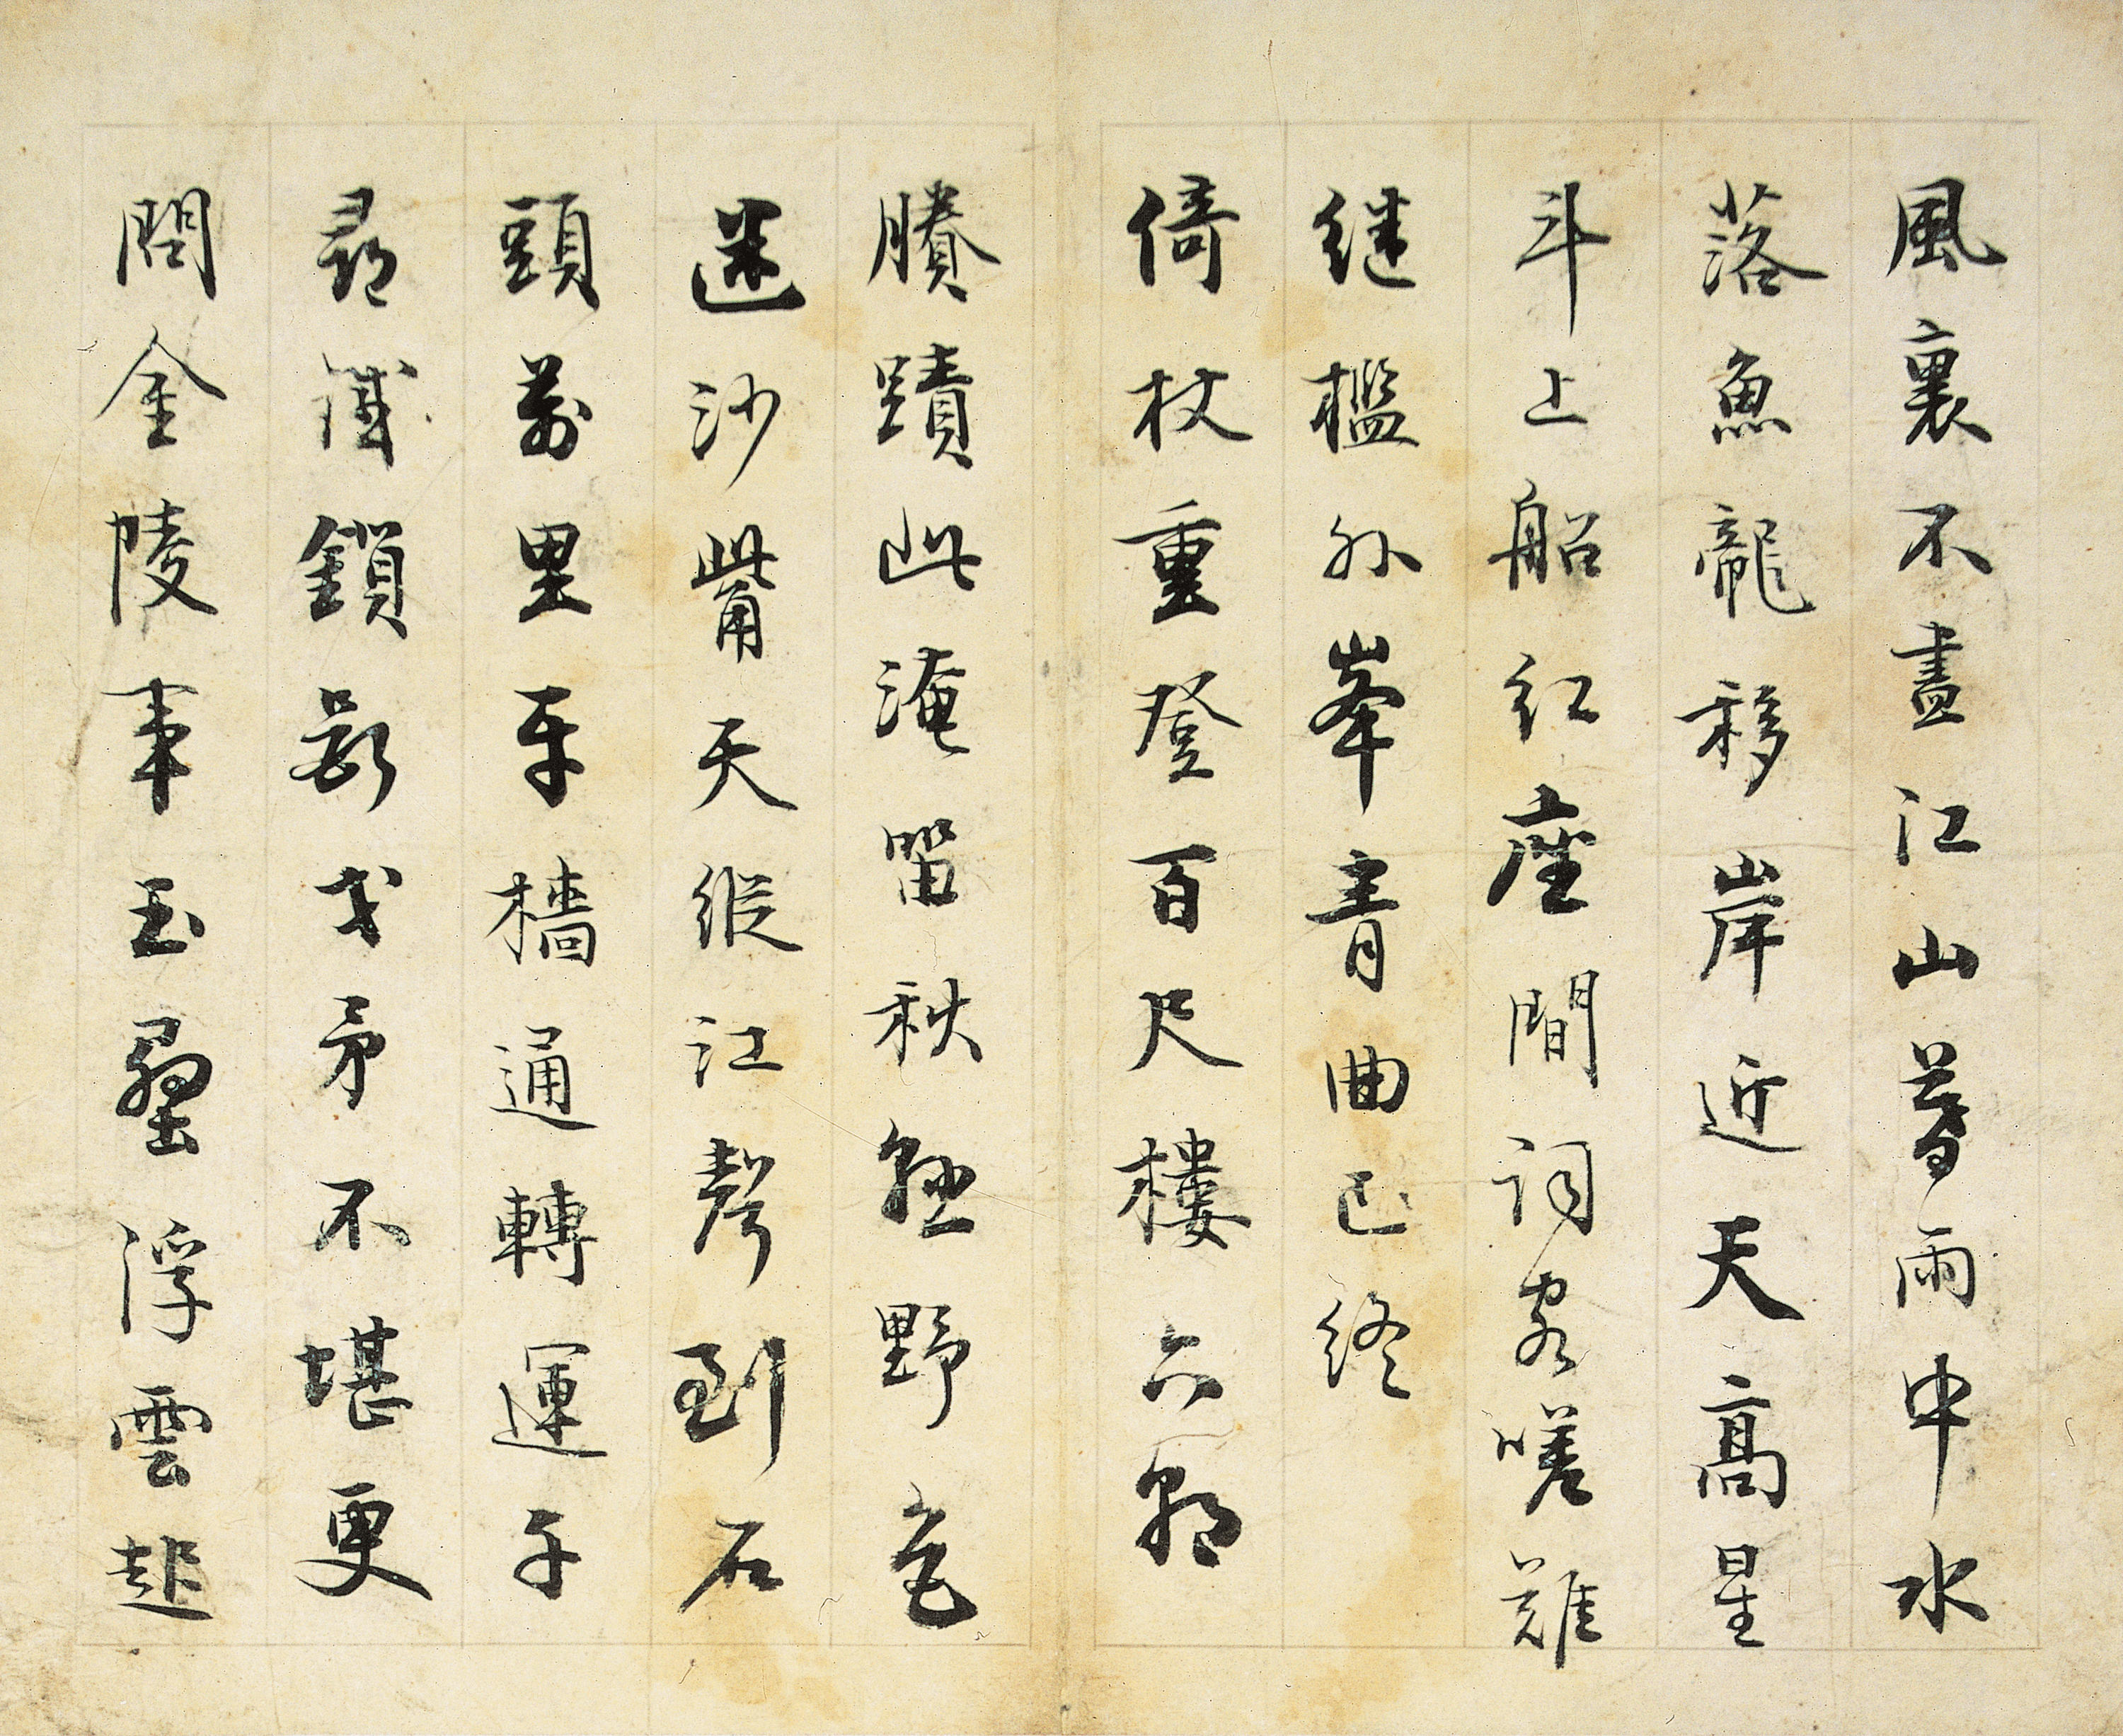 風裏不盡江山暮雨中水
落魚龍移岸近天高星
斗上船紅座間詞客嗟難
继檻外峯青曲已終
倚杖重登百尺樓六朝
賸蹟此淹留秋懸野色
迷沙觜天縱江聲到石
頭萬里牙檣通轉運千
尋鐵鎖斷戈矛不堪更
問金陵事玉壘浮雲起